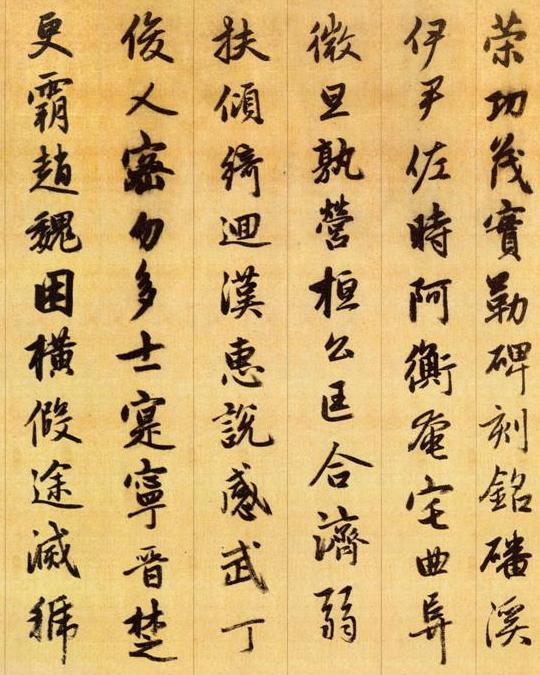 荣功茂實勒碑刻銘磻溪
伊尹佐時阿衡奄宅曲阜
微旦孰營桓公匡合濟弱
扶傾綺迴漢惠說感武丁
俊乂密勿多士寔寧晉楚
更霸趙魏困橫假途滅虢